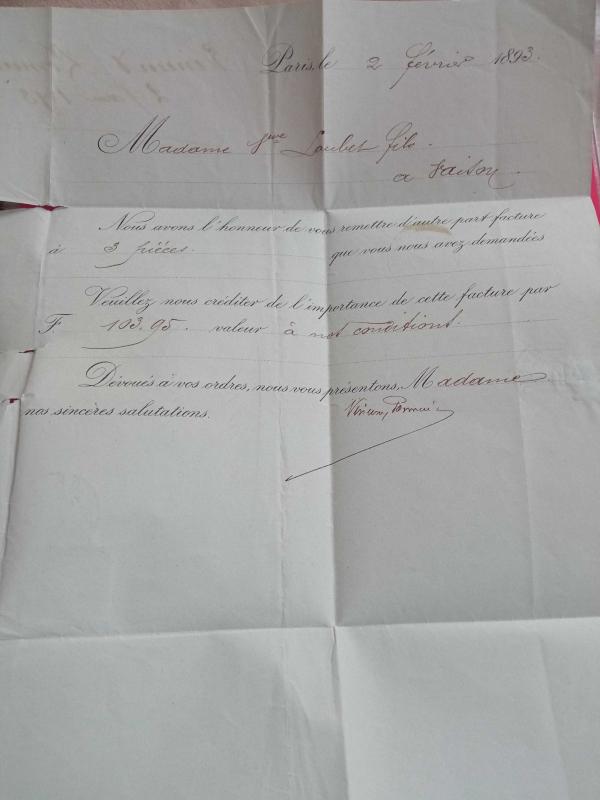 Paris, le 2 février 1893.
Madame Vve Loubet fils.
a Vaison.
Nous avons l'honneur de vous remettre d'autre part facture
à 3 pièces. que vous nous avez demandées
Veuillez nous créditer de l'importance de cette facture par
F 103.95. valeur à not conditions.
Dévoués à vos ordres, nous vous présentons, Madame
nos sincères salutations.